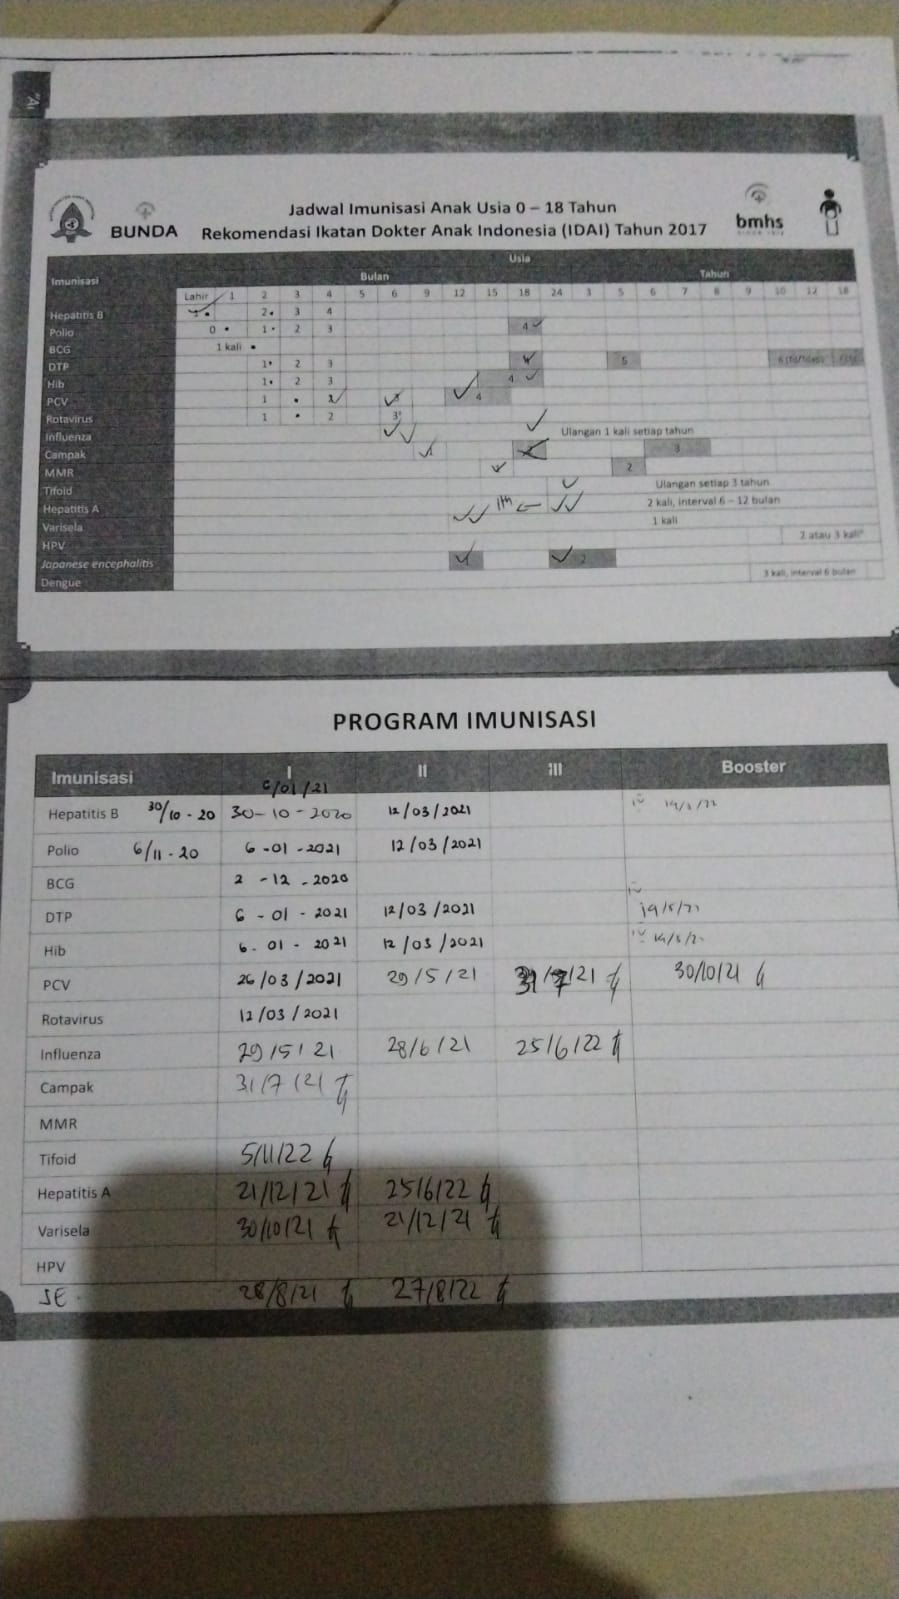 BUNDA
Jadwal Imunisasi Anak Usia 0 – 18 Tahun
Rekomendasi Ikatan Dokter Anak Indonesia (IDAI) Tahun 2017
bmhs
Usia
Imunisasi Bulan Tahun
Lahir 1 2 3 4 5 6 9 12 15 18 24 3 5 6 7 8 9 10 12 18
Hepatitis B 2 3 4
Polio 0 1 2 3 4
BCG 1 kali
DTP 1 2 3 5
Hib 1 2 3 4
PCV 1 2 3 4
Rotavirus 1 2 3
Influenza Ulangan 1 kali setiap tahun
Campak 3
MMR 2
Tifoid Ulangan setiap 3 tahun
Hepatitis A 2 kali, interval 6 – 12 bulan
Varisela 1 kali
HPV 2 atau 3 kali
Japanese encephalitis 2
Dengue 3 kali, interval 6 bulan
PROGRAM IMUNISASI
Imunisasi I II III Booster
6/01/21
Hepatitis B 30/10-20 30-10-2020 12/03/2021
Polio 6/11-20 6-01-2021 12/03/2021
BCG 2-12-2020
DTP 6-01-2021 12/03/2021
Hib 6-01-2021 12/03/2021
PCV 26/03/2021 29/5/21 30/10/21
Rotavirus 12/03/2021
Influenza 29/5/21 28/6/21 25/6/22
Campak 31/7/21
MMR
Tifoid 5/11/22
Hepatitis A 21/12/21 25/6/22
Varisela 30/10/21 21/12/21
HPV
JE 28/8/21 27/8/22